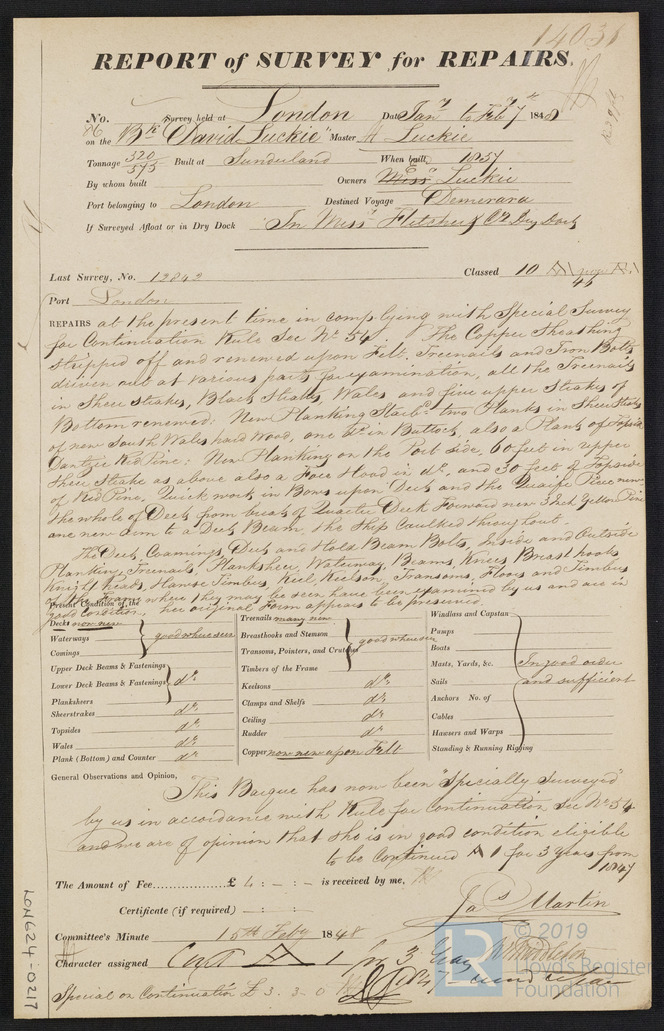 14031
REPORT of SURVEY for REPAIRS.
No. 86 Survey held at London Date Jany to Feby 7th 1848
on the Bk "David Luckie" Master Luckie
Tonnage 320/373 Built at Sunderland When built, 1837
By whom built Owners Luckie
Port belonging to London Destined Voyage Demerara
If Surveyed Afloat or in Dry Dock In Messrs Fletcher & Co Dry Dock
Last Survey, No. 12842 Classed 10 A1
Port London
REPAIRS at the present time in complying with Special Survey
for Continuation Rule Sec No. 54. The Copper Sheathing
stripped off and renewed upon Felt, Treenails and Iron Bolts
driven out at various parts for examination, all the Treenails
in Sheer strakes, Black Strakes, Wales, and five upper Strakes of
Bottom renewed: New Planking Starbd two Planks in Sheer Strake
of new South Wales hard Wood, one do in Buttock, also a Plank of Topside
Dantzic Red Pine: New Planking on the Port side, 60 feet in upper
Sheer Strake as above also a Fore Hood in do, and 30 feet of Topside
of Red Pine. Quick work in Bows upon Deck and the Quaife Piece new
the whole of Deck from break of Quarter Deck Forward new 3 Inch Yellow Pine
one new arm to a Deck Beam. the Ship Caulked throughout.
The Deck Coamings, Deck and Hold Beam Bolts, Inside and Outside
Planking, Treenails, Planksheer, Waterway, Beams, Knees, Breasthooks
Knight heads, Hawse Timbers, Keel, Keelson, Transoms, Floors and Timbers
of the Frame where they may be seen have been examined by us and are in
good Condition, her original Form appears to be preserved.
Present Condition of the
Decks now new
Waterways good where seen
Comings
Upper Deck Beams & Fastenings
Lower Deck Beams & Fastenings do
Planksheers
Sheerstrakes do
Topsides do
Wales do
Plank (Bottom) and Counter do
Treenails many new
Breasthooks and Stemson good where seen
Transoms, Pointers, and Crutches
Timbers of the Frame
Keelsons do
Clamps and Shelfs do
Ceiling do
Rudder do
Copper now new upon Felt
Windlass and Capstan
Pumps
Boats
Masts, Yards, &c. In good order
Sails and sufficient
Anchors No. of
Cables
Hawsers and Warps
Standing & Running Rigging
General Observations and Opinion,
This Barque has now been "Specially Surveyed"
by us in accordance with Rule for continuation Sec No. 54
and we are of opinion that she is in good condition eligible
to be Continued A 1 for 3 Years from
1847
The Amount of Fee..................£ 4 : - : - is received by me,
Certificate (if required) - : - : -
Jas Martin
Committee's Minute 15th Feby 1848
Character assigned Cont A 1 for 3 Years
Special on Continuation £ 3. 3. 0
LON624-0217
© 2019
Lloyd's Register
Foundation
LR